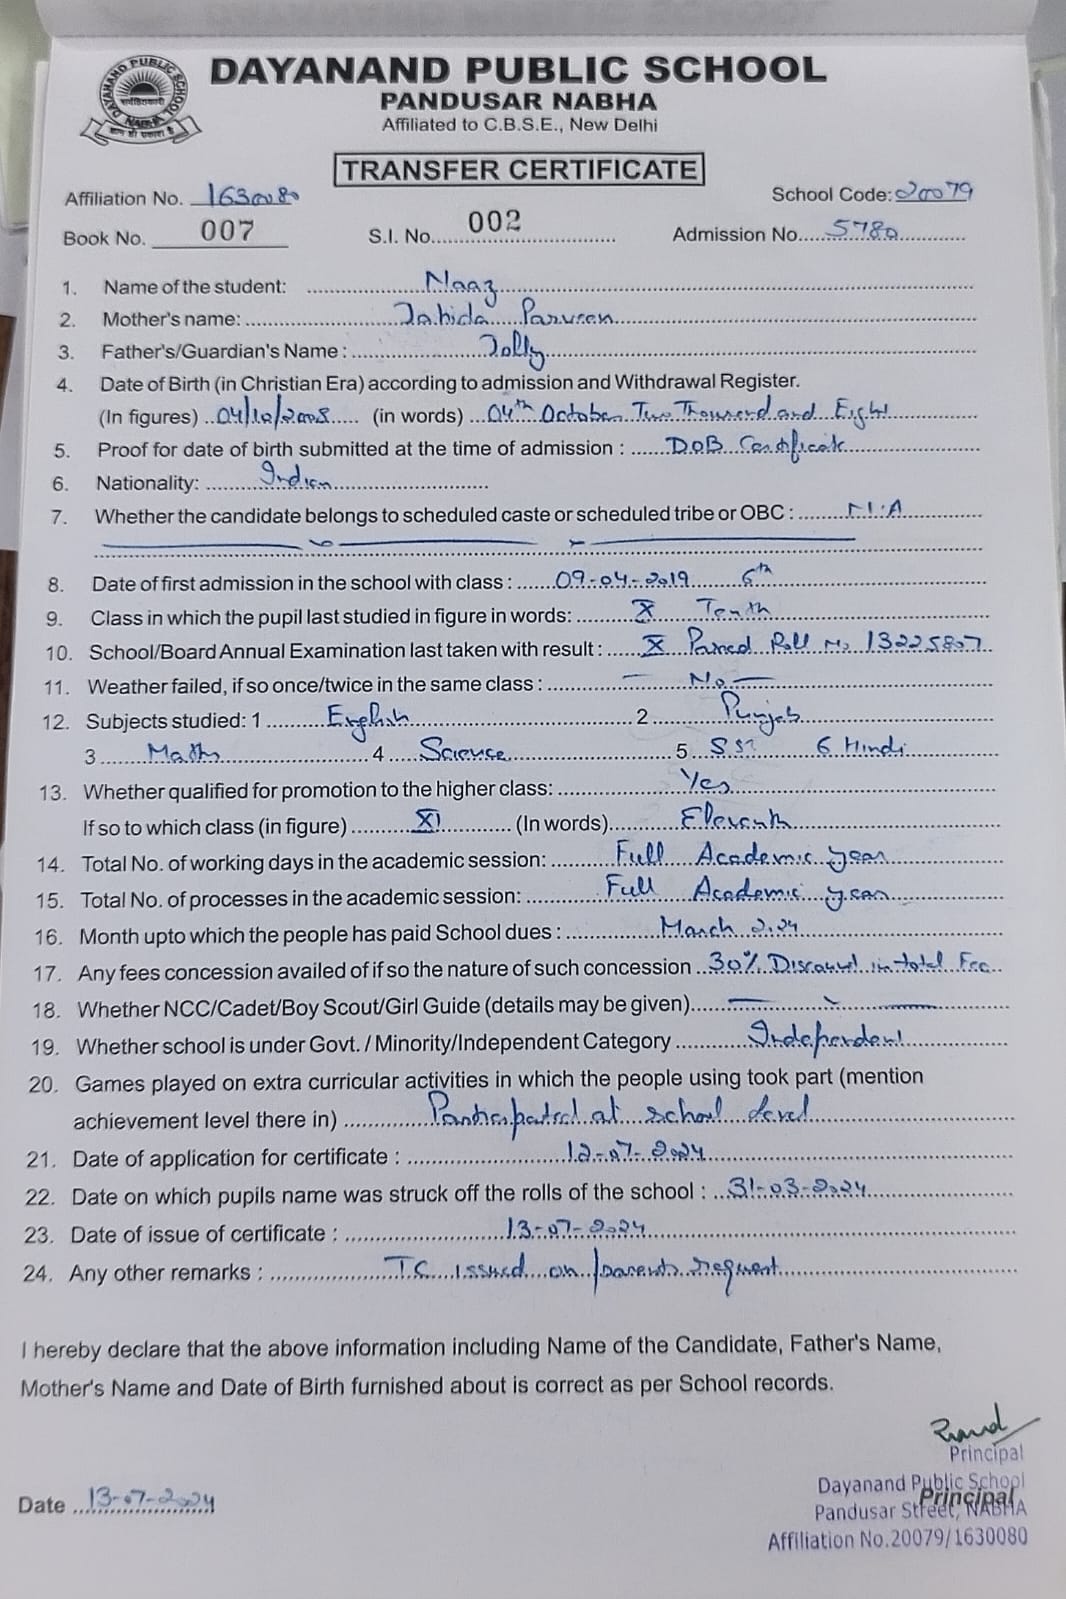 DAYANAND PUBLIC SCHOOL
PANDUSAR NABHA
Affiliated to C.B.S.E., New Delhi
DAYANAND PUBLIC SCHOOL
NABHA
TRANSFER CERTIFICATE
Affiliation No. 1630080
School Code: 20079
Book No. 007 S.I. No. 002 Admission No. 5780
1. Name of the student: Naaz
2. Mother's name: Zahida Parveen
3. Father's/Guardian's Name : Jolly
4. Date of Birth (in Christian Era) according to admission and Withdrawal Register.
(In figures) 04/10/2008 (in words) 04th October Two Thousand and Eight
5. Proof for date of birth submitted at the time of admission : DOB Certificate
6. Nationality: Indian
7. Whether the candidate belongs to scheduled caste or scheduled tribe or OBC : N.A
8. Date of first admission in the school with class : 09-04-2019
9. Class in which the pupil last studied in figure in words: X Tenth
10. School/Board Annual Examination last taken with result : X Passed Roll No 13225807
11. Weather failed, if so once/twice in the same class : — No —
12. Subjects studied: 1 English 2 Punjabi
3 Maths 4 Science 5 S.St 6 Hindi
13. Whether qualified for promotion to the higher class: Yes
If so to which class (in figure) XI (In words) Eleventh
14. Total No. of working days in the academic session: Full Academic year
15. Total No. of processes in the academic session: Full Academic year
16. Month upto which the people has paid School dues : March 2024
17. Any fees concession availed of if so the nature of such concession 30% Discount in total Fee
18. Whether NCC/Cadet/Boy Scout/Girl Guide (details may be given)
19. Whether school is under Govt. / Minority/Independent Category Independent
20. Games played on extra curricular activities in which the people using took part (mention
achievement level there in) Participated at school level
21. Date of application for certificate : 12-07-2024
22. Date on which pupils name was struck off the rolls of the school : 31-03-2024
23. Date of issue of certificate : 13-07-2024
24. Any other remarks : T.C issued on parents request
I hereby declare that the above information including Name of the Candidate, Father's Name,
Mother's Name and Date of Birth furnished about is correct as per School records.
Principal
Dayanand Public School
Principal
Pandusar Street, NABHA
Affiliation No.20079/1630080
Date 13-07-2024